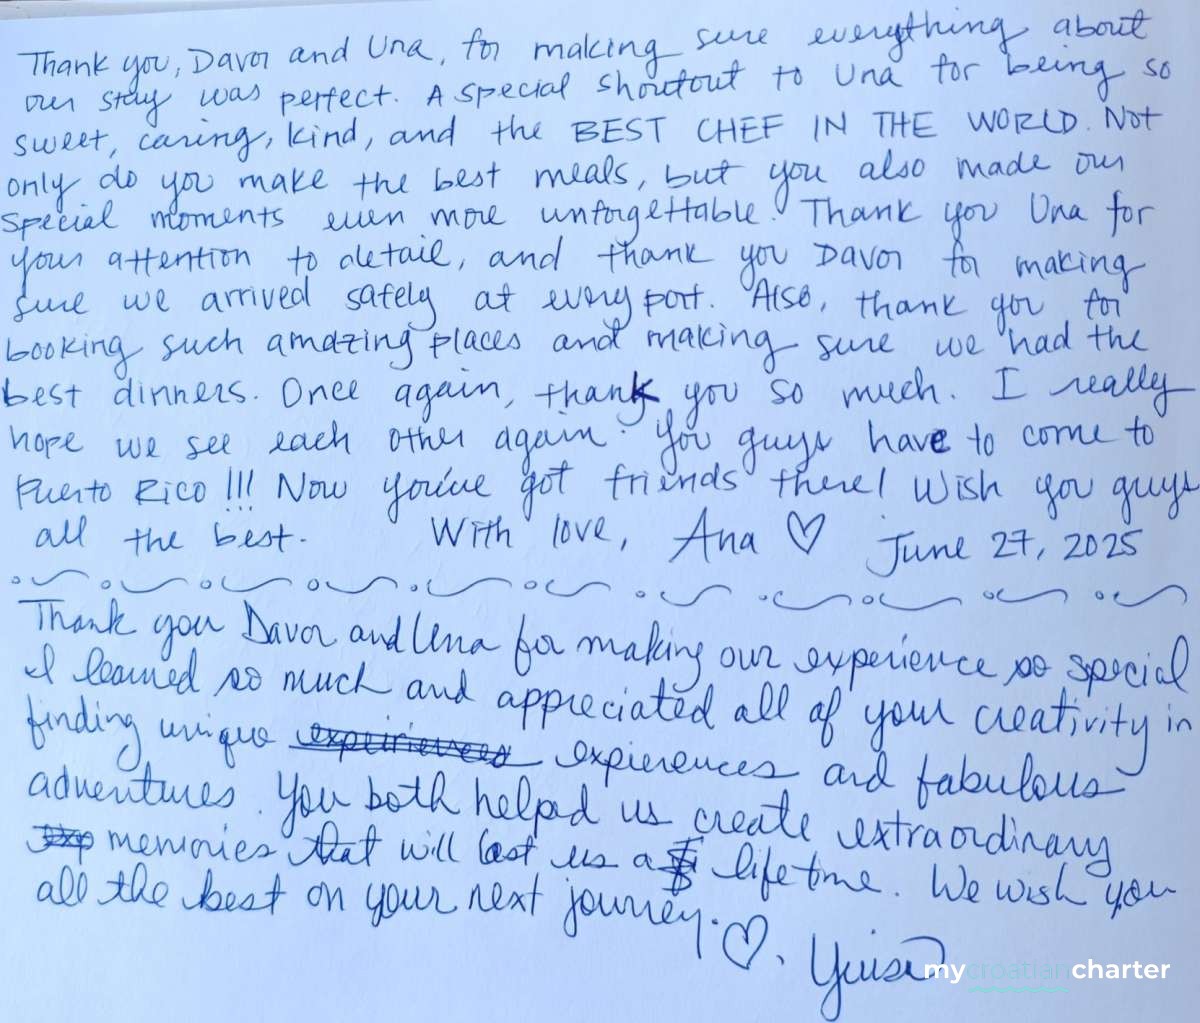 Thank you, Davor and Una, for making sure everything about
our stay was perfect. A special shoutout to Una for being so
sweet, caring, kind, and the BEST CHEF IN THE WORLD. Not
only do you make the best meals, but you also made our
special moments even more unforgettable. Thank you Una for
your attention to detail, and thank you Davor for making
sure we arrived safely at every port. Also, thank you for
booking such amazing places and making sure we had the
best dinners. Once again, thank you so much. I really
hope we see each other again. You guys have to come to
Puerto Rico!!! Now you've got friends there! Wish you guys
all the best. With love, Ana ♡ June 27, 2025
Thank you Davor and Una for making our experience so special
I learned so much and appreciated all of your creativity in
finding unique experiences and fabulous
adventures. You both helped us create extraordinary
memories that will last us a lifetime. We wish you
all the best on your next journey. ♡.
mycroatiancharter